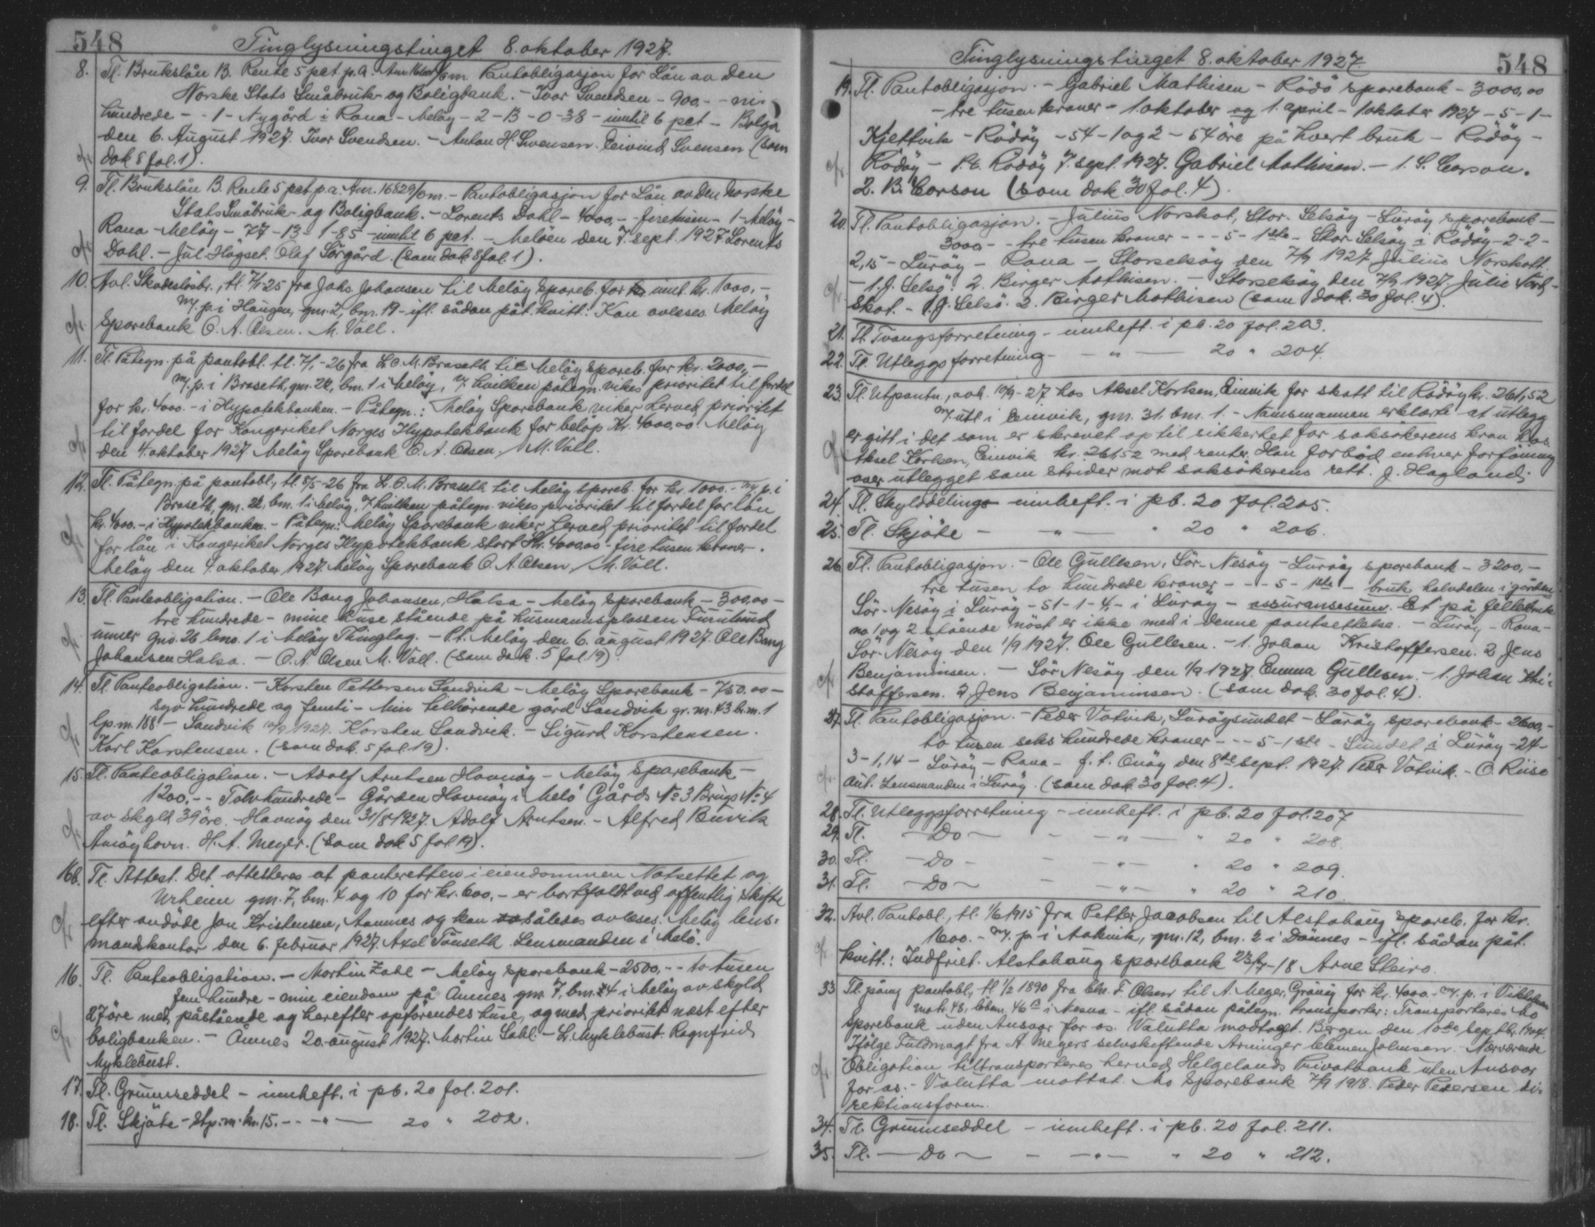 548 Tinglysningstinget 8. oktober 1927.
8. Tl. Brukslån B. Rente 5 pct p.a. Pantobligasjon for Lån av Den
Norske Stats Småbruk- og Boligbank. - Ivar Svendsen - 900,- - ni-
hundrede - - 1 - Nygård i Rana - Meløy - 2 - 13 - 0-38 - inntil 6 pct - Bolga
den 6. August 1927. Ivar Svendsen. - Anton H. Svensen. Eivind Svensen (som
dok 8 fol. 1).
9. Tl. Brukslån B. Rente 5 pct p.a. Anr. 16829/ - Pantobligasjon for Lån av Den Norske
Stats Småbruk- og Boligbank. - Lorents Dahl - 4000,- - firetusen - 1 - Meløy -
Rana - Meløy - 77 - 13 - 1-85 - inntil 6 pct. - Meløen den 7. sept. 1927 Lorents
Dahl. - Jul Hågset. Olaf Sørgård. (som dok 8 fol. 1).
10. Avl. Skadesløsbr., tl. 25 fra Jakob Johansen til Meløy spareb. for inntil kr. 1000,-
m/ p. i Haugen, gnr. 2, bnr. 19 - ifl. sådan påt. kvitt: Kan avleses Meløy
Sparebank O. A. Olsen. M. Vall.
11. Tl. Påtegn. på pantobl. tl. 7/1-26 fra L. C. M. Braseth til Meløy spareb. for kr. 2000,-
m/ p. i Braseth, gnr. 22, bnr. 1 i Meløy, v/ hvilken påtegn. vikes prioritet til fordel
for kr. 4000.- i Hypotekbanken. - Påtegn.: Meløy Sparebank viker herved prioritet
til fordel for Kongeriket Norges Hypotekbank for beløp Kr. 4000,00 Meløy
den 4. oktober 1927 Meløy Sparebank O. A. Olsen, M. Vall.
12. Tl. Påtegn. på pantobl., tl. 8/5-26 fra L. C. M. Braseth til Meløy spareb. for kr. 1000.- m/ p. i
Braseth, gnr. 22, bnr. 1 i Meløy, v/ hvilken påtegn. vikes prioritet til fordel for lån
kr. 4000.- i Hypotekbanken. - Påtegn: Meløy Sparebank viker herved prioritet til fordel
for lån i Kongeriket Norges Hypotekbank stort Kr. 4000,00 fire tusen kroner.
Meløy den 4. oktober 1927 Meløy Sparebank O. A. Olsen, M. Vall.
13. Tl. Panteobligation. - Ole Bang Johansen, Halsa - Meløy sparebank - 300,00 -
tre hundrede - mine huse stående på husmannsplassen Furulund
under gno 26 bno. 1 i Meløy Thinglag. - Pt. Meløy den 6. august 1927 Ole Bang
Johansen Halsa. - O. A. Olsen M. Vall. (som dok 5 fol 19).
14. Tl. Panteobligation. - Korsten Pettersen Sandvik - Meløy Sparebank - 750,00 -
syv hundrede og femti - Min tilhørende gård Sandvik gr. nr. 43 b. nr. 1
lp. nr. 188 - Sandvik 1927. Korsten Sandvik. - Sigurd Korstensen.
Karl Karstensen. (som dok. 5 fol. 19).
15. Tl. Panteobligation. - Adolf Arntsen Havnøy - Meløy Sparebank -
1200,- - Tolvhundrede - Gården Havnøy i Melø Gårds № 3 Brugs № 4
av skyld 39 øre. - Havnøy den 31/8 1927. Adolf Arntsen. - Alfred Buvik
Amøyhavn. H. A. Meyer. (som dok 5 fol 19).
16b. Tl. Attest. Det attesteres at panteretten i eiendommen Notsettet og
Urheim gnr. 7, bnr. 4 og 10 for kr. 600,- er bortfaldt ved offentlig skifte
efter avdøde Jan Kristensen, Aamnes og kan således avleses. Meløy lens-
mandskontor den 6. februar 1927. Axel Tønseth Lensmanden i Melø.
16. Tl. Panteobligation. - Morten Zahl - Meløy sparebank - 2500,- - to tusen
fem hundre - min eiendom på Åmnes gnr. 7, bnr. 24 i Meløy av skyld
27 øre med påstående og herefter opførendes huse, og med prioritet næst efter
boligbanken. - Åmnes 20. august 1927. Morten Zahl. - L. Myklebust. Ragnfrid
Myklebust.
17. Tl. Grunnseddel - innheft. i pb. 20 fol. 201.
18. Tl. Skjøte - stp: m. kr. 15. - - " - 20 " 202.
Tinglysningstinget 8. oktober 1927 548
19. Tl. Pantobligasjon. - Gabriel Mathisen - Rødø sparebank - 3000,00
- tre tusen kroner - 1 oktober og 1. april - 1 oktober 1927 - 5 - 1 -
Kjeltvik - Rødøy - 54 - 1 og 2 - 54 øre på hvert bruk - Rødøy -
Rødøy - Pt. Rødøy 7. sept. 1927. Gabriel Mathisen. - 1. S. Corson.
2. B. Corson (som dok 30 fol. 4).
20. Tl. Pantobligasjon. - Julius Norskot, Stor. Selsøy - Lurøy sparebank -
3000,- - tre tusen kroner - - - 5 - 1ste - Stor Selsøy i Rødøy - 2 - 2 -
2,15 - Lurøy - Rana - Storselsøy den 7/9 1927 Julius Norskott
- 1. J. Selsø. 2. Birger Mathisen. - Storselsøy den 7/9 1927 Julie Nord-
skot. - 1. J. Selsø. 2. Birger Mathisen (som dok. 30 fol. 4).
21. Tl. Tvangsforretning - innheft. i pb. 20 fol. 203.
22. Tl. Utleggsforretning - " - 20 " 204.
23. Tl. Utpantn., avh. 10/9-27 hos Aksel Korhsen, Eimvik for skatt til Rødøy kr. 261,52
m/ utl. i Eimvik, gnr. 31. bnr. 1. - Namsmannen erklærte at utlegg
er gitt i det som er skrevet op til sikkerhet for saksøkerens krav hos
Aksel Korhsen, Eimvik kr. 261.52 med renter. Han forbød enhver forføining
over utlegget som strider mot saksøkerens rett. J. Hagland.
24. Tl. Skylddelings- innheft. i pb. 20 fol. 205.
25. Tl. Skjøte - - " - " 20 " 206.
26. Tl. Pantobligasjon. - Ole Gullesen, Sør. Nesøy - Lurøy sparebank - 3200,-
tre tusen to hundrede kroner - - - 5 - 1ste - bruk, halvdelen i gården
Sør. Nesøy i Lurøy - 51 - 1 - 4 - i Lurøy - assuransesum. Et på fellesbruk
no. 1 og 2 stående nöst er ikke med i denne pantsettelse. - Lurøy - Rana -
Sør. Nesøy den 1/9 1927. Ole Gullesen. - 1. Johan Kristoffersen. 2. Jens
Benjaminsen. - Sör Nesøy den 1/9 1927 Emma Gullesen. - 1. Johan Kri-
stoffersen. 2. Jens Benjaminsen. (som dok. 30 fol. 4).
27. Tl. Pantobligasjon. - Peder Votvik, Lurøysundet - Lurøy sparebank - 2600,-
to tusen seks hundrede kroner - - - 5 - 1ste - Sundet i Lurøy - 24 -
3 - 1,14 - Lurøy - Rana - f. t. Onøy den 8de sept. 1927. Peder Votvik. - O. Riise
aut. Lensmanden i Lurøy. (som dok 30 fol. 4).
28. Tl. Utleggsforretning - innheft. i pb. 20 fol. 207
29. Tl. - Do - - - " - " 20 " 208.
30. Tl. - Do - - - " - " 20 " 209.
31. Tl. - Do - - - " - " 20 " 210.
32. Avl. Pantobl., tl. 1915 fra Petter Jacobsen til Alstahaug Spareb. for kr.
1600.- m/ p. i Aakvik, gnr. 12, bnr. 2 i Dønnes - ifl. sådan påt.
kvitt.: Indfriet. Alstahaug sparebank -18 Arne Sleiro.
33. Tl. påny pantobl., tl. 1890 fra Chr. F. Olsen til A. Meyer, Grønøy for kr. 4000.- m/ p. i
i Nesna - ifl. sådan påtegn. transporter: Transporteres Mo
Sparebank uden Ansvar for os. Valutta modtaget. Bergen den 10de septbr. 1904.
Ifølge Fuldmagt fra A Meyers selvskiftende Arvinger Clemen Johnsen. Nærværende
Obligation tiltransporteres herved Helgelands Privatbank uten Ansvar
for os. - Valutta mottat. Mo Sparebank 7/9 1918. Peder Pedersen di-
rektionsform.
34. Tl. Grunnseddel - innheft. i pb. 20 fol. 211.
35. Tl. - Do - - - " - " 20 " 212.